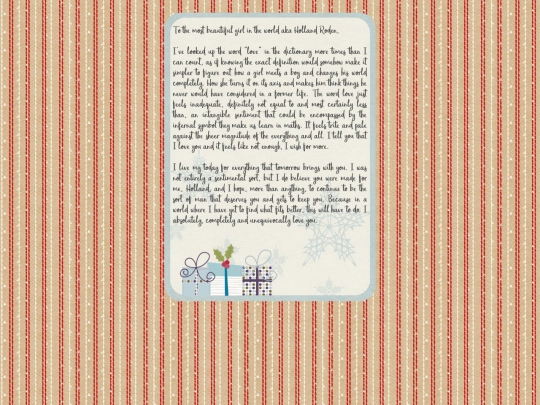 To the most beautiful girl in the world aka Holland Roden,
I've looked up the word "love" in the dictionary more times than I
can count, as if knowing the exact definition would somehow make it
simpler to figure out how a girl meets a boy and changes his world
completely. How she turns it on its axis and makes him think things he
never would have considered in a former life. The word love just
feels inadequate, definitely not equal to and most certainly less
than, an intangible sentiment that could be encompassed by the
infernal symbol they make us learn in maths. It feels trite and pale
against the sheer magnitude of the everything and all. I tell you that
I love you and it feels like not enough, I wish for more.
I live my today for everything that tomorrow brings with you. I was
not entirely a sentimental sort, but I do believe you were made for
me, Holland, and I hope, more than anything, to continue to be the
sort of man that deserves you and gets to keep you. Because in a
world where I have yet to find what fits better, this will have to do. I
absolutely, completely and unequivocally love you.